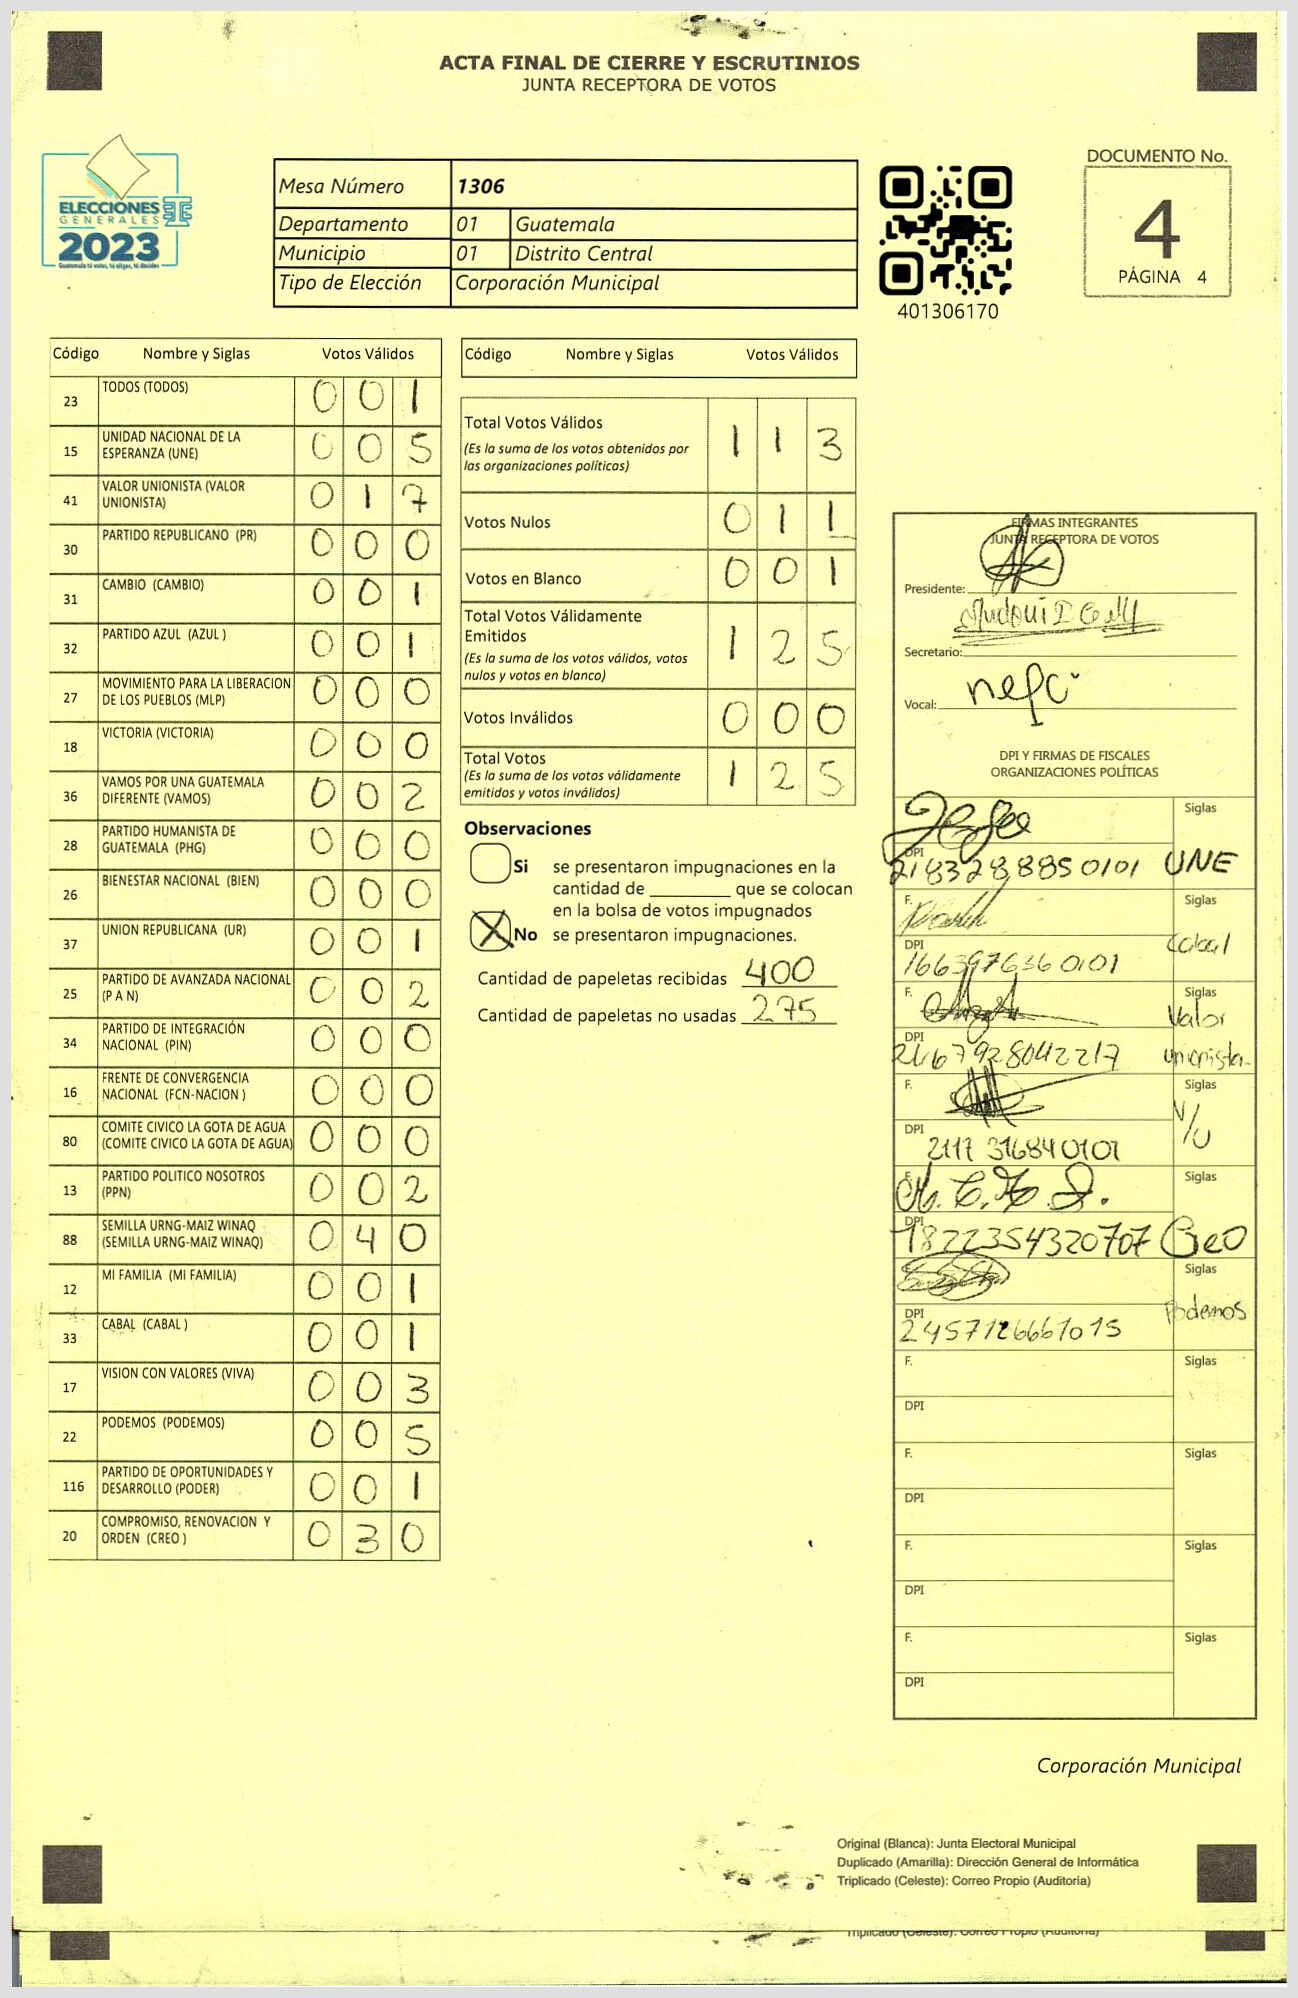 ACTA FINAL DE CIERRE Y ESCRUTINIOS
JUNTA RECEPTORA DE VOTOS
ELECCIONES
GENERALES
2023
Guatemala tú votas, tú eliges, tú decides
Mesa Número 1306
Departamento 01 Guatemala
Municipio 01 Distrito Central
Tipo de Elección Corporación Municipal
401306170
DOCUMENTO No.
4
PÁGINA 4
Código Nombre y Siglas Votos Válidos
23 TODOS (TODOS) 0 0 1
15 UNIDAD NACIONAL DE LA ESPERANZA (UNE) 0 0 5
41 VALOR UNIONISTA (VALOR UNIONISTA) 0 1 7
30 PARTIDO REPUBLICANO (PR) 0 0 0
31 CAMBIO (CAMBIO) 0 0 1
32 PARTIDO AZUL (AZUL ) 0 0 1
27 MOVIMIENTO PARA LA LIBERACION DE LOS PUEBLOS (MLP) 0 0 0
18 VICTORIA (VICTORIA) 0 0 0
36 VAMOS POR UNA GUATEMALA DIFERENTE (VAMOS) 0 0 2
28 PARTIDO HUMANISTA DE GUATEMALA (PHG) 0 0 0
26 BIENESTAR NACIONAL (BIEN) 0 0 0
37 UNION REPUBLICANA (UR) 0 0 1
25 PARTIDO DE AVANZADA NACIONAL (P A N) 0 0 2
34 PARTIDO DE INTEGRACIÓN NACIONAL (PIN) 0 0 0
16 FRENTE DE CONVERGENCIA NACIONAL (FCN-NACION ) 0 0 0
80 COMITE CIVICO LA GOTA DE AGUA (COMITE CIVICO LA GOTA DE AGUA) 0 0 0
13 PARTIDO POLITICO NOSOTROS (PPN) 0 0 2
88 SEMILLA URNG-MAIZ WINAQ (SEMILLA URNG-MAIZ WINAQ) 0 4 0
12 MI FAMILIA (MI FAMILIA) 0 0 1
33 CABAL (CABAL ) 0 0 1
17 VISION CON VALORES (VIVA) 0 0 3
22 PODEMOS (PODEMOS) 0 0 5
116 PARTIDO DE OPORTUNIDADES Y DESARROLLO (PODER) 0 0 1
20 COMPROMISO, RENOVACION Y ORDEN (CREO ) 0 3 0
Código Nombre y Siglas Votos Válidos
Total Votos Válidos 1 1 3
(Es la suma de los votos obtenidos por
las organizaciones políticas)
Votos Nulos 0 1 1
Votos en Blanco 0 0 1
Total Votos Válidamente
Emitidos 1 2 5
(Es la suma de los votos válidos, votos
nulos y votos en blanco)
Votos Inválidos 0 0 0
Total Votos 1 2 5
(Es la suma de los votos válidamente
emitidos y votos inválidos)
Observaciones
Si se presentaron impugnaciones en la
cantidad de ________ que se colocan
en la bolsa de votos impugnados
X No se presentaron impugnaciones.
Cantidad de papeletas recibidas 400
Cantidad de papeletas no usadas 275
FIRMAS INTEGRANTES
JUNTA RECEPTORA DE VOTOS
Presidente:
Secretario:
Vocal:
DPI Y FIRMAS DE FISCALES
ORGANIZACIONES POLÍTICAS
Siglas
DPI 2183288850101 UNE
F. Siglas
DPI 1663976360101 Cabal
F. Siglas
DPI 2467928042217 Valor unionista
F. Siglas
DPI 2117 316840101 V/U
F. Siglas
DPI 1822354320707 CreO
Siglas
DPI 2457126661015 Podemos
F. Siglas
DPI
F. Siglas
DPI
F. Siglas
DPI
F. Siglas
DPI
Corporación Municipal
Original (Blanca): Junta Electoral Municipal
Duplicado (Amarilla): Dirección General de Informática
Triplicado (Celeste): Correo Propio (Auditoria)
Triplicado (Celeste): Correo Propio (Auditoria)